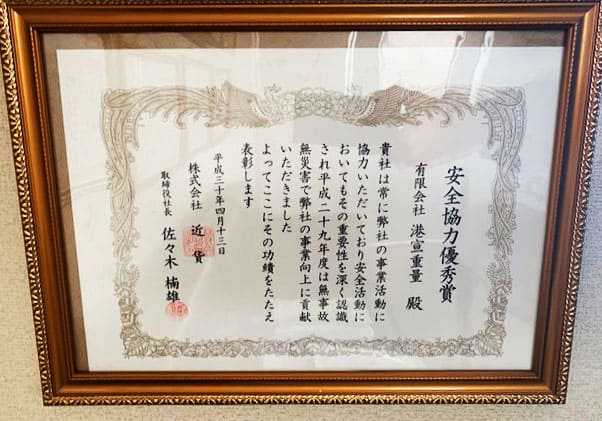 安全協力優秀賞
有限会社 港宣重量 殿
貴社は常に弊社の事業活動に
協力いただいており安全活動に
おいてもその重要性を深く認識
され平成二十九年度は無事故
無災害で弊社の事業向上に貢献
いただきました
よってここにその功績をたたえ
表彰します
平成三十年四月十三日
株式会社 近 貨
取締役社長 佐々木 楠雄